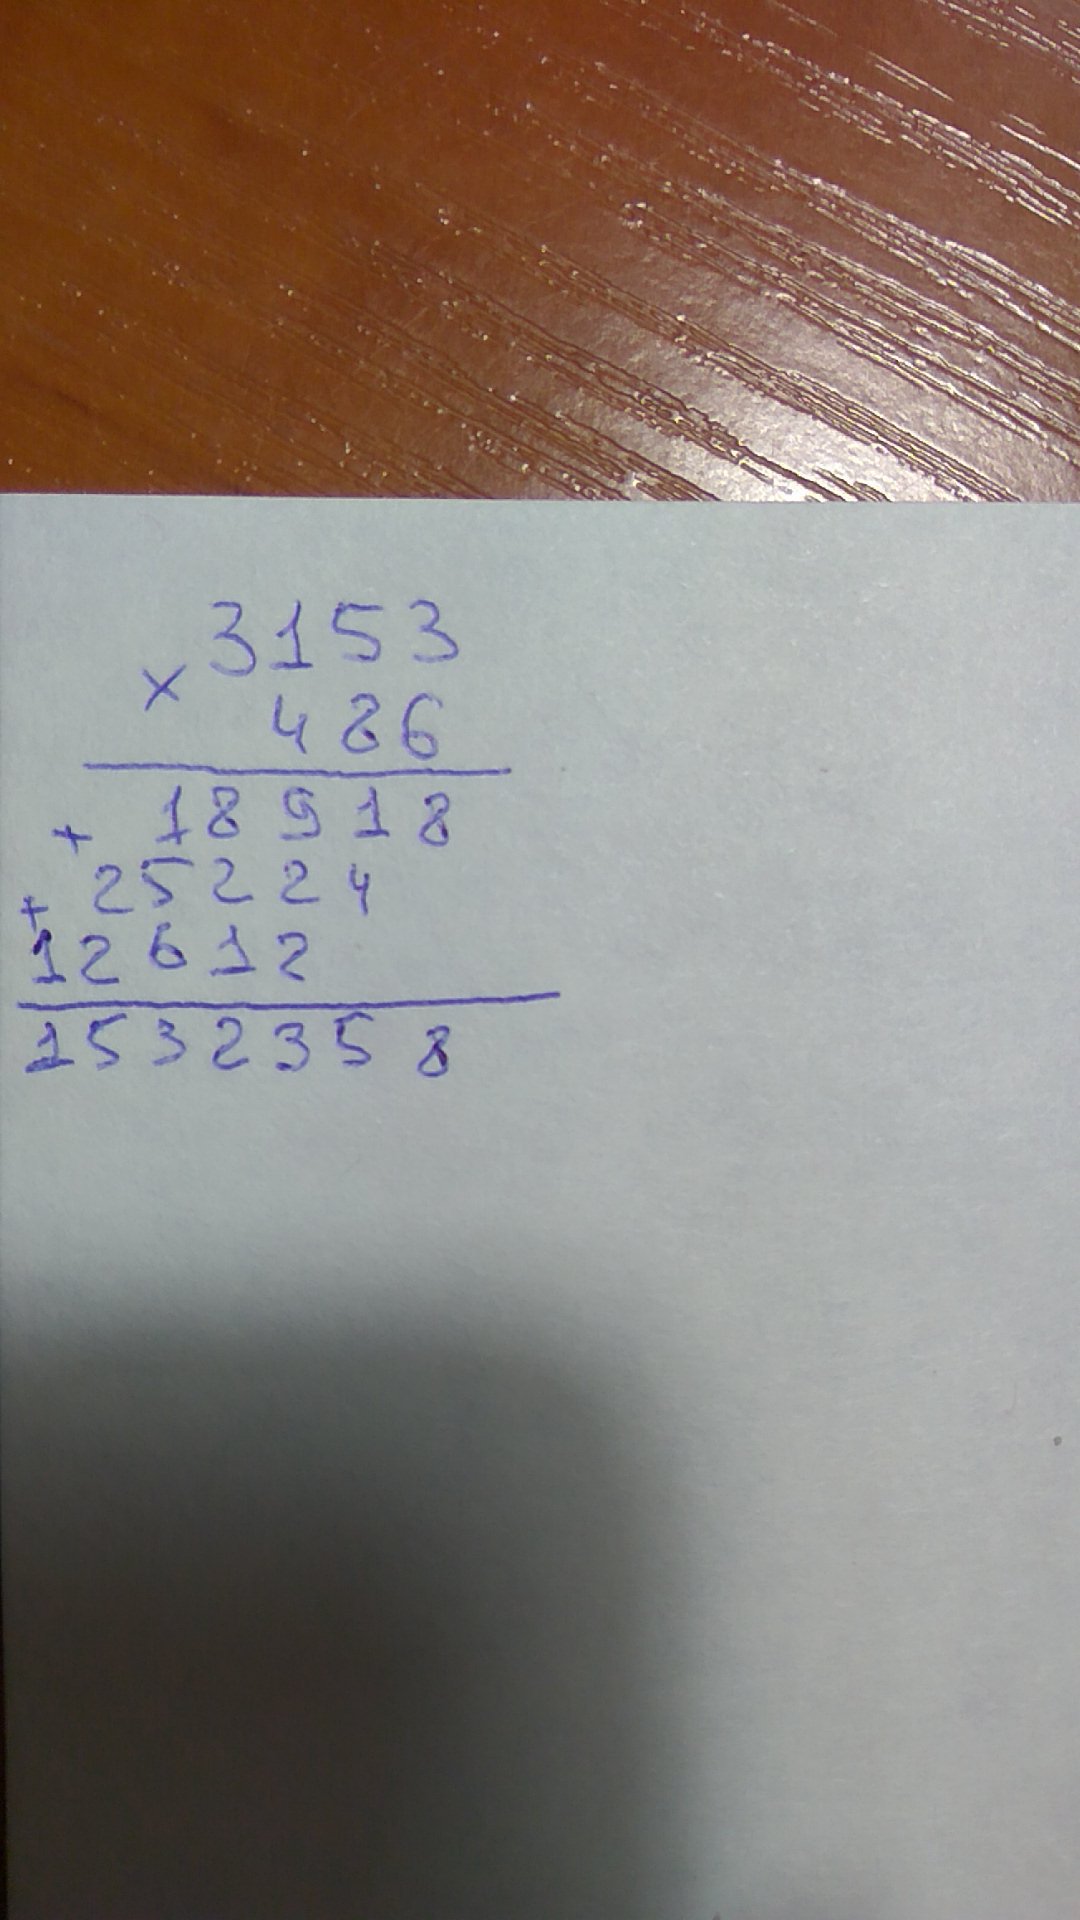 3153
× 486
+ 18918
+ 25224
12612
1532358